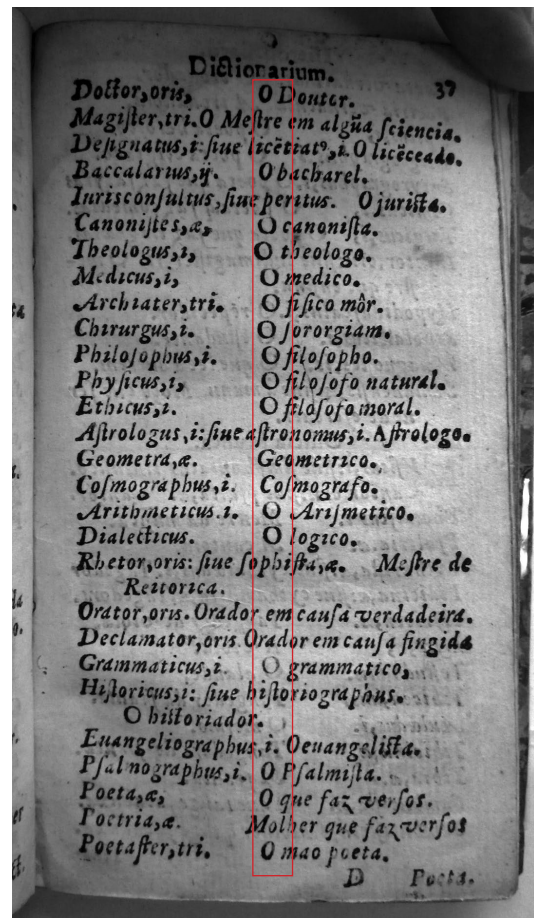 Dictionarium. 37
Doctor,oris, O Doutor.
Magiſter,tri. O Meſtre em algũa ſciencia.
Deſignatus,i: ſiue licẽtiatꝰ,i. O licẽceado.
Baccalarius,ij. O bacharel.
Iurisconſultus, ſiue peritus. O juriſta.
Canoniſtes,æ, O canoniſta.
Theologus,i, O theologo.
Medicus,i, O medico.
Archiater,tri. O fiſico môr.
Chirurgus,i. O ſororgiam.
Philoſophus,i. O filoſopho.
Phyſicus,i, O filoſofo natural.
Ethicus,i. O filoſofo moral.
Aſtrologus,i: ſiue aſtronomus,i. Aſtrologo.
Geometra,æ. Geometrico.
Coſmographus,i. Coſmografo.
Arithmeticus.i. O Ariſmetico.
Dialecticus. O logico.
Rhetor,oris: ſiue ſophiſta,æ. Meſtre de
Reitorica.
Orator,oris. Orador em cauſa verdadeira.
Declamator,oris. Orador em cauſa fingida
Grammaticus,i. O grammatico,
Hiſtoricus,i: ſiue hiſtoriographus.
O hiſtoriador.
Euangeliographus,i. Oeuangeliſta.
Pſalmographus,i. O Pſalmiſta.
Poeta,æ, O que faz verſos.
Poetria,æ. Molher que faz verſos
Poetaſter,tri. O mao poeta.
D Poeta.